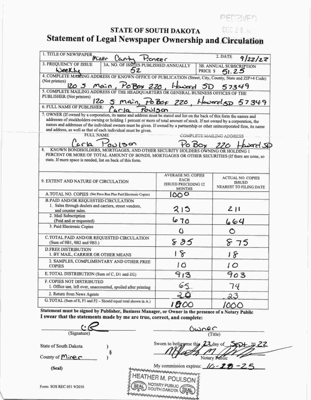 RECEIVED
STATE OF SOUTH DAKOTA
Statement of Legal Newspaper Ownership and Circulation
1. TITLE OF NEWSPAPER Miner County Pioneer 2. DATE 9/22/22
3. FREQUENCY OF ISSUE Weekly 3A. NO. OF ISSUES PUBLISHED ANNUALLY 52 3B. ANNUAL SUBSCRIPTION PRICE $ 51.25
4. COMPLETE MAILING ADDRESS OF KNOWN OFFICE OF PUBLICATION (Street, City, County, State and ZIP+4 Code) (Not printers)
120 S Main, PO Box 220, Howard SD 57349
5. COMPLETE MAILING ADDRESS OF THE HEADQUARTERS OF GENERAL BUSINESS OFFICES OF THE PUBLISHER (Not printers)
120 S main, PO Box 220, Howard SD 57349
6. FULL NAME OF PUBLISHER: Carla Poulson
7. OWNER (If owned by a corporation, its name and address must be stated and list on the back of this form the names and
addresses of stockholders owning or holding 1 percent or more of total amount of stock. If not owned by a corporation, the
names and addresses of the individual owners must be given. If owned by a partnership or other unincorporated firm, its name
and address, as well as that of each individual must be given.
FULL NAME COMPLETE MAILING ADDRESS
Carla Poulson PO Box 220 Howard SD
8. KNOWN BONDHOLDERS, MORTGAGEES, AND OTHER SECURITY HOLDERS OWNING OR HOLDING 1
PERCENT OR MORE OF TOTAL AMOUNT OF BONDS, MORTGAGES OR OTHER SECURITIES (If there are none, so
state. If more space is needed, list on back of this form.
9. EXTENT AND NATURE OF CIRCULATION AVERAGE NO. COPIES EACH ISSUED PRECEDING 12 MONTHS ACTUAL NO. COPIES ISSUED NEAREST TO FILING DATE
A. TOTAL NO. COPIES (Net Press Run Plus Paid Electronic Copies) 1000
B. PAID AND/OR REQUESTED CIRCULATION
1. Sales through dealers and carriers, street vendors, and counter sales. 215 211
2. Mail Subscription (Paid and or requested) 670 664
3. Paid Electronic Copies 0 0
C. TOTAL PAID AND/OR REQUESTED CIRCULATION (Sum of 9B1, 9B2 and 9B3) 885 875
D. FREE DISTRIBUTION
1. BY MAIL, CARRIER OR OTHER MEANS 18 18
2. SAMPLES, COMPLIMENTARY AND OTHER FREE COPIES 10 10
E. TOTAL DISTRIBUTION (Sum of C, D1 and D2) 913 903
F. COPIES NOT DISTRIBUTED
1. Office use, left over, unaccounted, spoiled after printing 65 74
2. Return from News Agents 23
G. TOTAL (Sum of E, F1 and F2 – Should equal total shown in A.) 1000 1000
Statement must be signed by Publisher, Business Manager, or Owner in the presence of a Notary Public
I swear that the statements made by me are true, correct, and complete:
(Signature) Owner (Title)
State of South Dakota ) Sworn to before me this 23 day of Sept 22
County of Miner ) Notary Public
(Seal) My commission expires: 10-28-25
HEATHER M. POULSON
NOTARY PUBLIC
SOUTH DAKOTA
Form: SOS REC 051 9/2010